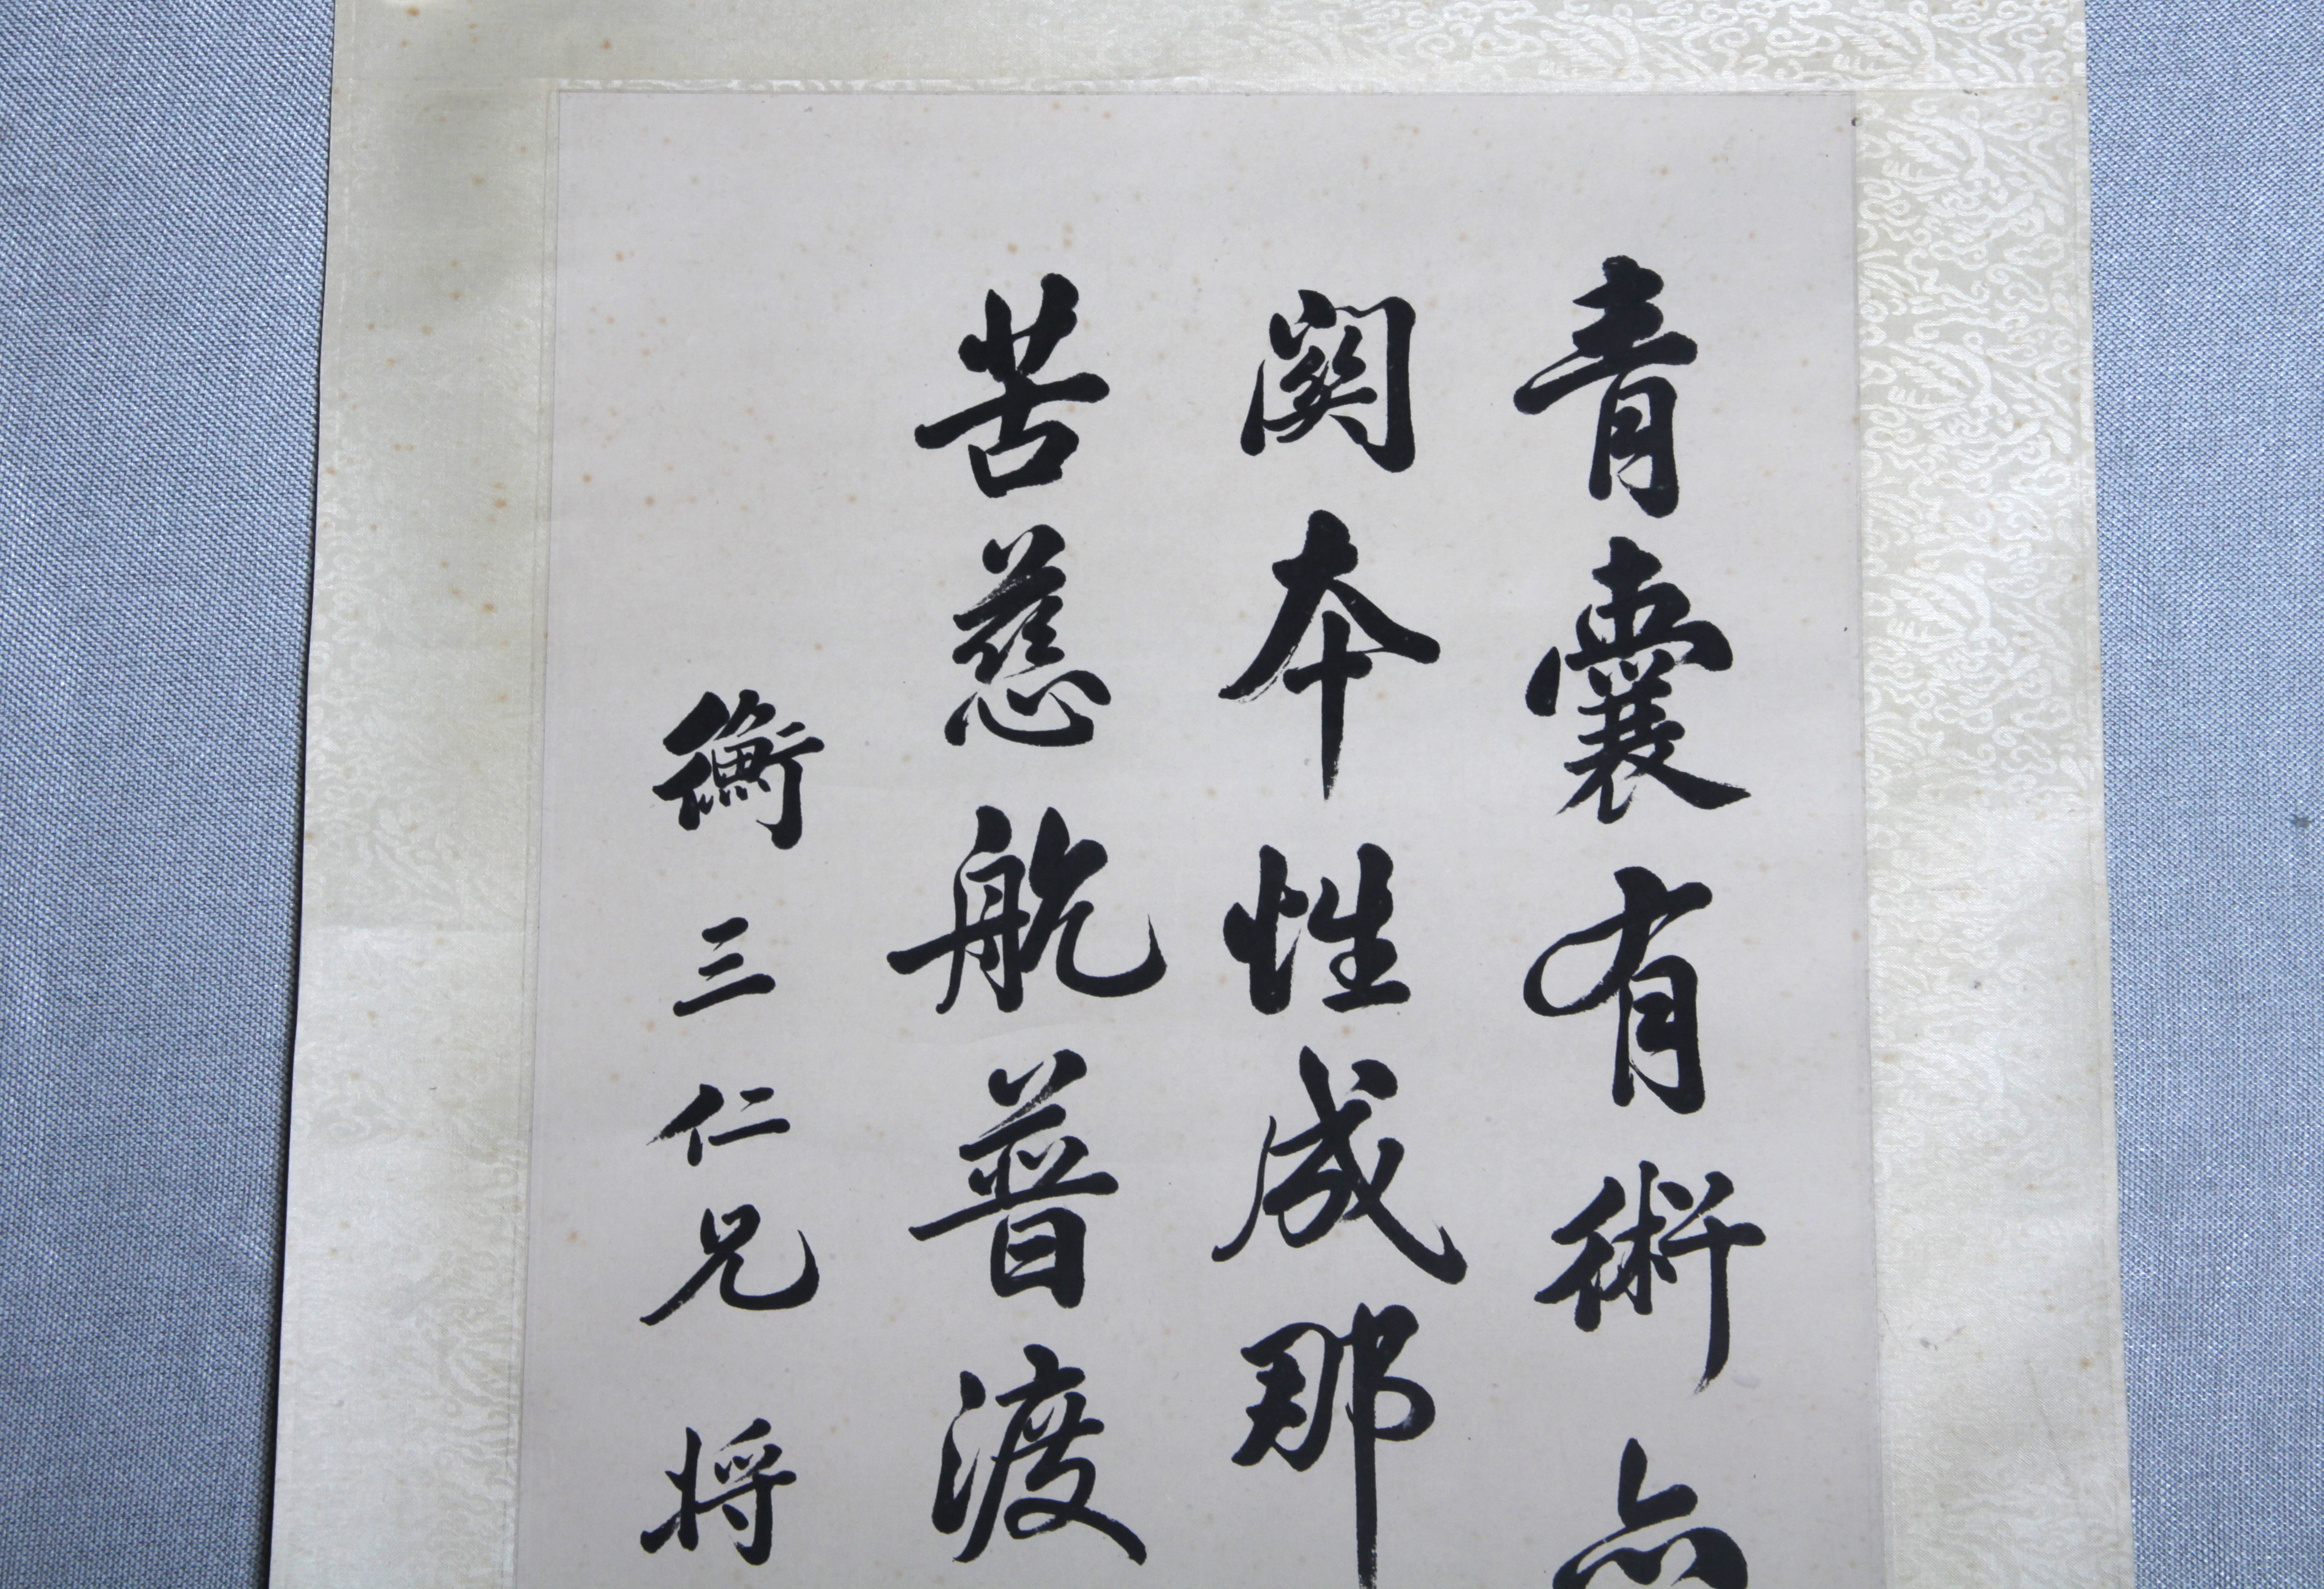 青囊有術亦
関本性成那
苦慈航普渡
衡三仁兄將